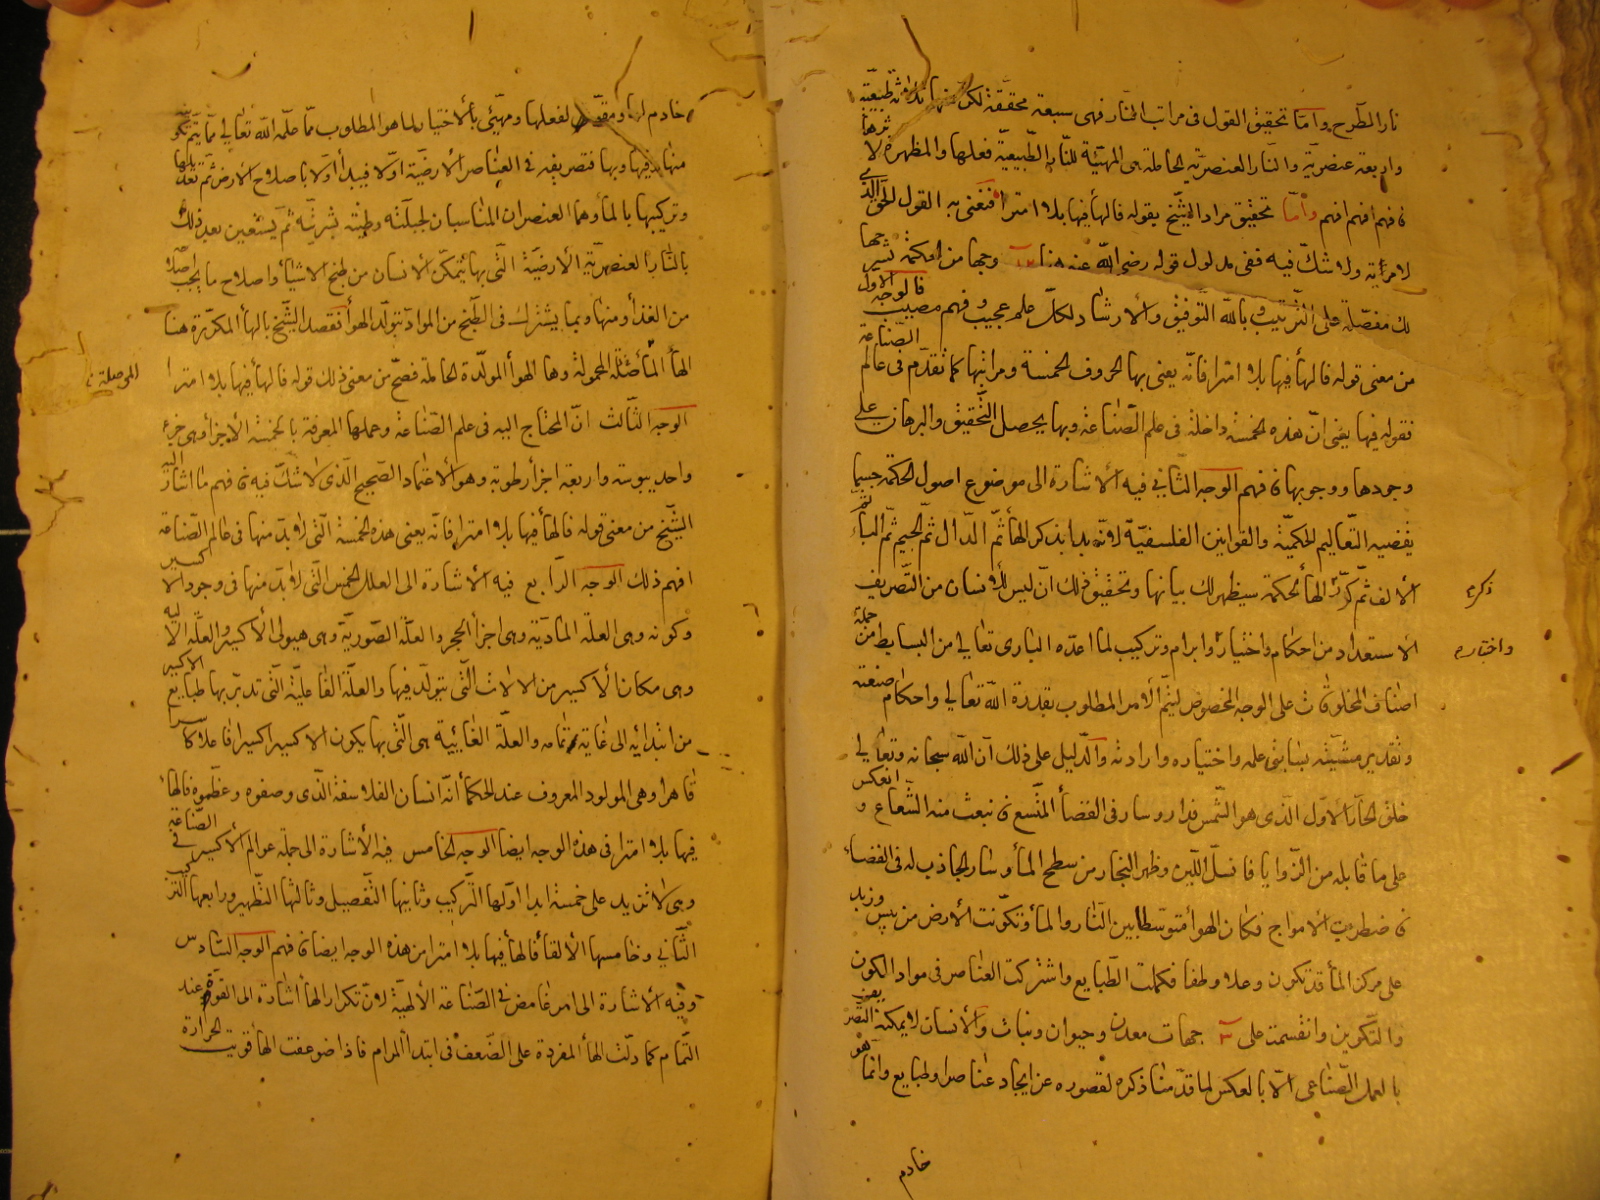 نار الطّرح وامّا تحقيق القول فى مراتب النّار فهى سبعة محققّة لكن منها ثلاثة طبيعيّة
واربعة عنصريّة والنار العنصريّة الحاملة هى المهيّية للنّار الطّبيعيّة فعلها والمظهرة لاثرها
فافهم افهم افهم وأمّا تحقيق مراد الشّيخ بقوله فالهاء فيها بلا امترا فنعنى به القول الحق الّذى
لا مرية ولا شكّ فيه ففى مدلول قوله رضى اللّه عنه هنا وجها من الحكمة نشرحها
لك مفصّلة على التّرتيب وباللّه التّوفيق والأرشاد لكلّ علم عجيب وفهم مصيب فالوجه الاول
من معنى قوله فالهاء فيها بلا امترا فانّه يعنى بها الحروف الخمسة ومراتبها كما تقدّم فى عالم الصّناعة
فقوله فيها يعنى انّ هذه الخمسة داخلة فى علم الصّناعة وبها يحصل التّحقيق والبرهان على
وجودها ووجوبها فافهم الوجه الثّانى فيه الأشارة الى موضوع اصول الحكمة حسبما
تقضيه التّعاليم الحكميّة والقوانين الفلسفيّة لانّه بدا بذكر الهاء ثمّ الدّال ثمّ الجيم ثمّ الباء ثم
الألف ثمّ كرّر الهاء لحكمة سيظهر لك بيانها وتحقيق ذلك انّ ليس للأنسان من التّصريف
الأستعداد من احكام واختيار وابرام وتركيب لما اعدّه البارى تعالى من البسايط من جملة
اصناف المخلوقات على الوجه المخصوص ليتمّ الامر المطلوب بقدرة اللّه تعالى واحكام صنعته
وتقدير مشيّته بسابق علمه واختياره وارادته والدّليل على ذلك انّ اللّه سبحانه وتعالى
خلق الحارّ الاوّل الّذى هو الشّمس فدار وسار فى الفضاء المتّسع فانبعث منه الشّعاع وانعكس
على ما قابله من الزّوايا فانسلّ اللّين وظهر البخار من سطح الماء وسار الجاذب له فى الفضاء
فاضطربت الامواج فكان الهواء متوسّطا بين النّار والماء وتكوّنت الأرض من يبس وزبد
على مركز الماء قد تكون وعلا وطفا فكملت الطّبايع واشتركت العناصر فى مواد الكون
والتّكوين وانقسمت على ٣ جهات معدن وحيوان ونبات والأنسان لا يمكنه التّصريف
بالعمل الصّناعى الّا بالعكس لما قدّمنا ذكره لقصوره عن ايجاد عناصر او طبايع وانّما هو
خادم
ذكره
واختباره
خادم لها ومقوّى لفعلها ومهيّئ بالأختيار لما هو المطلوب ممّا علّمه اللّه تعالى ممّا يتكوّن
منها وفيها وبها فتصريفه فى العناصر الأرضيّة اوّلا فيبدأ اوّلا باصلاح الارض ثمّ تعديلها
وتركيبها بالماء وهما العنصران المناسبان لجبلّته وطينته بشريّته ثمّ يستعين بعد ذلك
بالنّار العنصريّة الأرضيّة الّتى بها يتمكّن الأنسان من طبخ الاشياء واصلاح ما يجب اصلاحه
من الغذاء ومنها وبما يشترك فى الطّبخ من الموادّ يتولّد الهواء فقصد الشّيخ بالهاء المكرّرة هنا
الهاء المأصلة المحمولة وها الهواء المولّدة الحاملة فصحّ من معنى ذلك قوله فالهاء فيها بلا امترا
الموصلة
الوجه الثّالث انّ المحتاج اليه فى علم الصّناعة وعملها المعرفة بالخمسة الأجزاء وهى جزء
واحد يبوسة واربعة اجزاء رطوبة وهو الأعتماد الصّحيح الّذى لا شكّ فيه فافهم ما اشار اليه
الشّيخ من معنى قوله فالهاء فيها بلا امترا فانّه يعنى هذه الخمسة الّتى لا بدّ منها فى عالم الصّناعة
افهم ذلك الوجه الرّابع فيه الأشارة الى العلل الخمس الّتى لا بدّ منها فى وجود الاكسير
وكونه وهى العلّة المادّية وهى اجزاء الحجر والعلّة الصّوريّة وهى هيولى الأكسير والعلّة الآليه
وهى مكان الأكسير من الالات الّتى يتولّد فيها والعلّة الفاعليّة الّتى تدبّر بها طبايع الاكسير
من ابتدائه الى غاية تمامه والعلّة الغائيية هى الّتى بها يكون الاكسير اكسيرا فاعلا كاسرا
قاهرا وهى المولود المعروف عند الحكماء انّه انسان الفلاسفة الّذى وصفوه وعظّموه فالهاء
فيها بلا امترا فى هذه الوجه ايضا الوجه الخامس فيه الأشارة الى جملة عوالم الأكسير فى الصّناعة
وهى لا تزيد على خمسة ابدا اوّلها التّركيب وثانيها التّفصيل وثالثها التّطهير ورابعها التّركيب
الثّانى وخامسها الألقاء فالهاء فيها بلا امترا من هذه الوجه ايضا فافهم الوجه السّادس
وفيه الأشارة الى امر غامض فى الصّناعة الألهيّة لانّ تكرار الهاء اشارة الى القوّة عند
التّمام كما دلّت الهاء المفردة على الضّعف فى ابتداء المرام فاذا ضوعفت الهاء قويت الحرارة